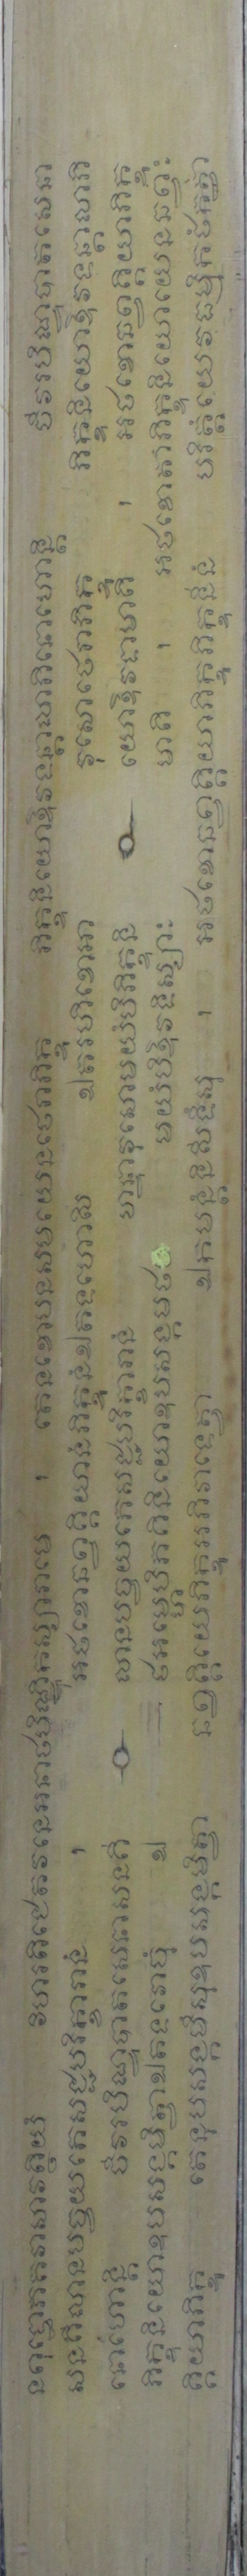 នពុទ្ធោភគវាសាវត្ថិយំ វិហរតិជេតវនេអនាថបិណ្ឌិកស្សារាមេ ។ តេនខោបនសមយេនថេរាភិក្ខូ ភិក្ខុនិយោឱវទន្តាលាភិនោហោន្តិ ចីវរបិណ្ឌបាតសេនា
សនគិលានបច្ចយភេសជ្ជបរិក្ខារានំ ។ អថខោឆព្វគ្គិយានំភិក្ខូនំឯតទហោសិ ឯតរហិខោអា វុសោថេរាភិក្ខូ ភិក្ខុនិយោឱវទន្តាលាភិ
នោហោន្តិ ចីវរបិណ្ឌបាតសេនាសនគិ លានបច្ចយភេសជ្ជបរិក្ខារានំ ហន្ទាវុសោមយំបិភិក្ខុនិ យោឱវទាមាតិ ។ អថខោឆព្វគ្គិយាភិក្ខូ
ភិក្ខុនិយោឧបសង្កមិត្វាឯតទវោចុំ ឯ ថអម្ហេបិភគិនិយោឧបសង្កមថ មយំបិឱវទិស្សាៈ មាតិ ។ អថខោតាភិក្ខុនិយោយេនឆព្វៈ
គ្គិយាភិក្ខូ តេនុបសង្កមឹសុឧបសង្កមិត្វា ឆព្វគ្គិយេភិក្ខូអភិវាទេត្វា ឯកមន្តំនិសីទឹសុ ។ អថខោឆព្វគ្គិយាភិក្ខូភិក្ខុនីនំ បរិត្តំយេវធម្មិកថំកត្វា